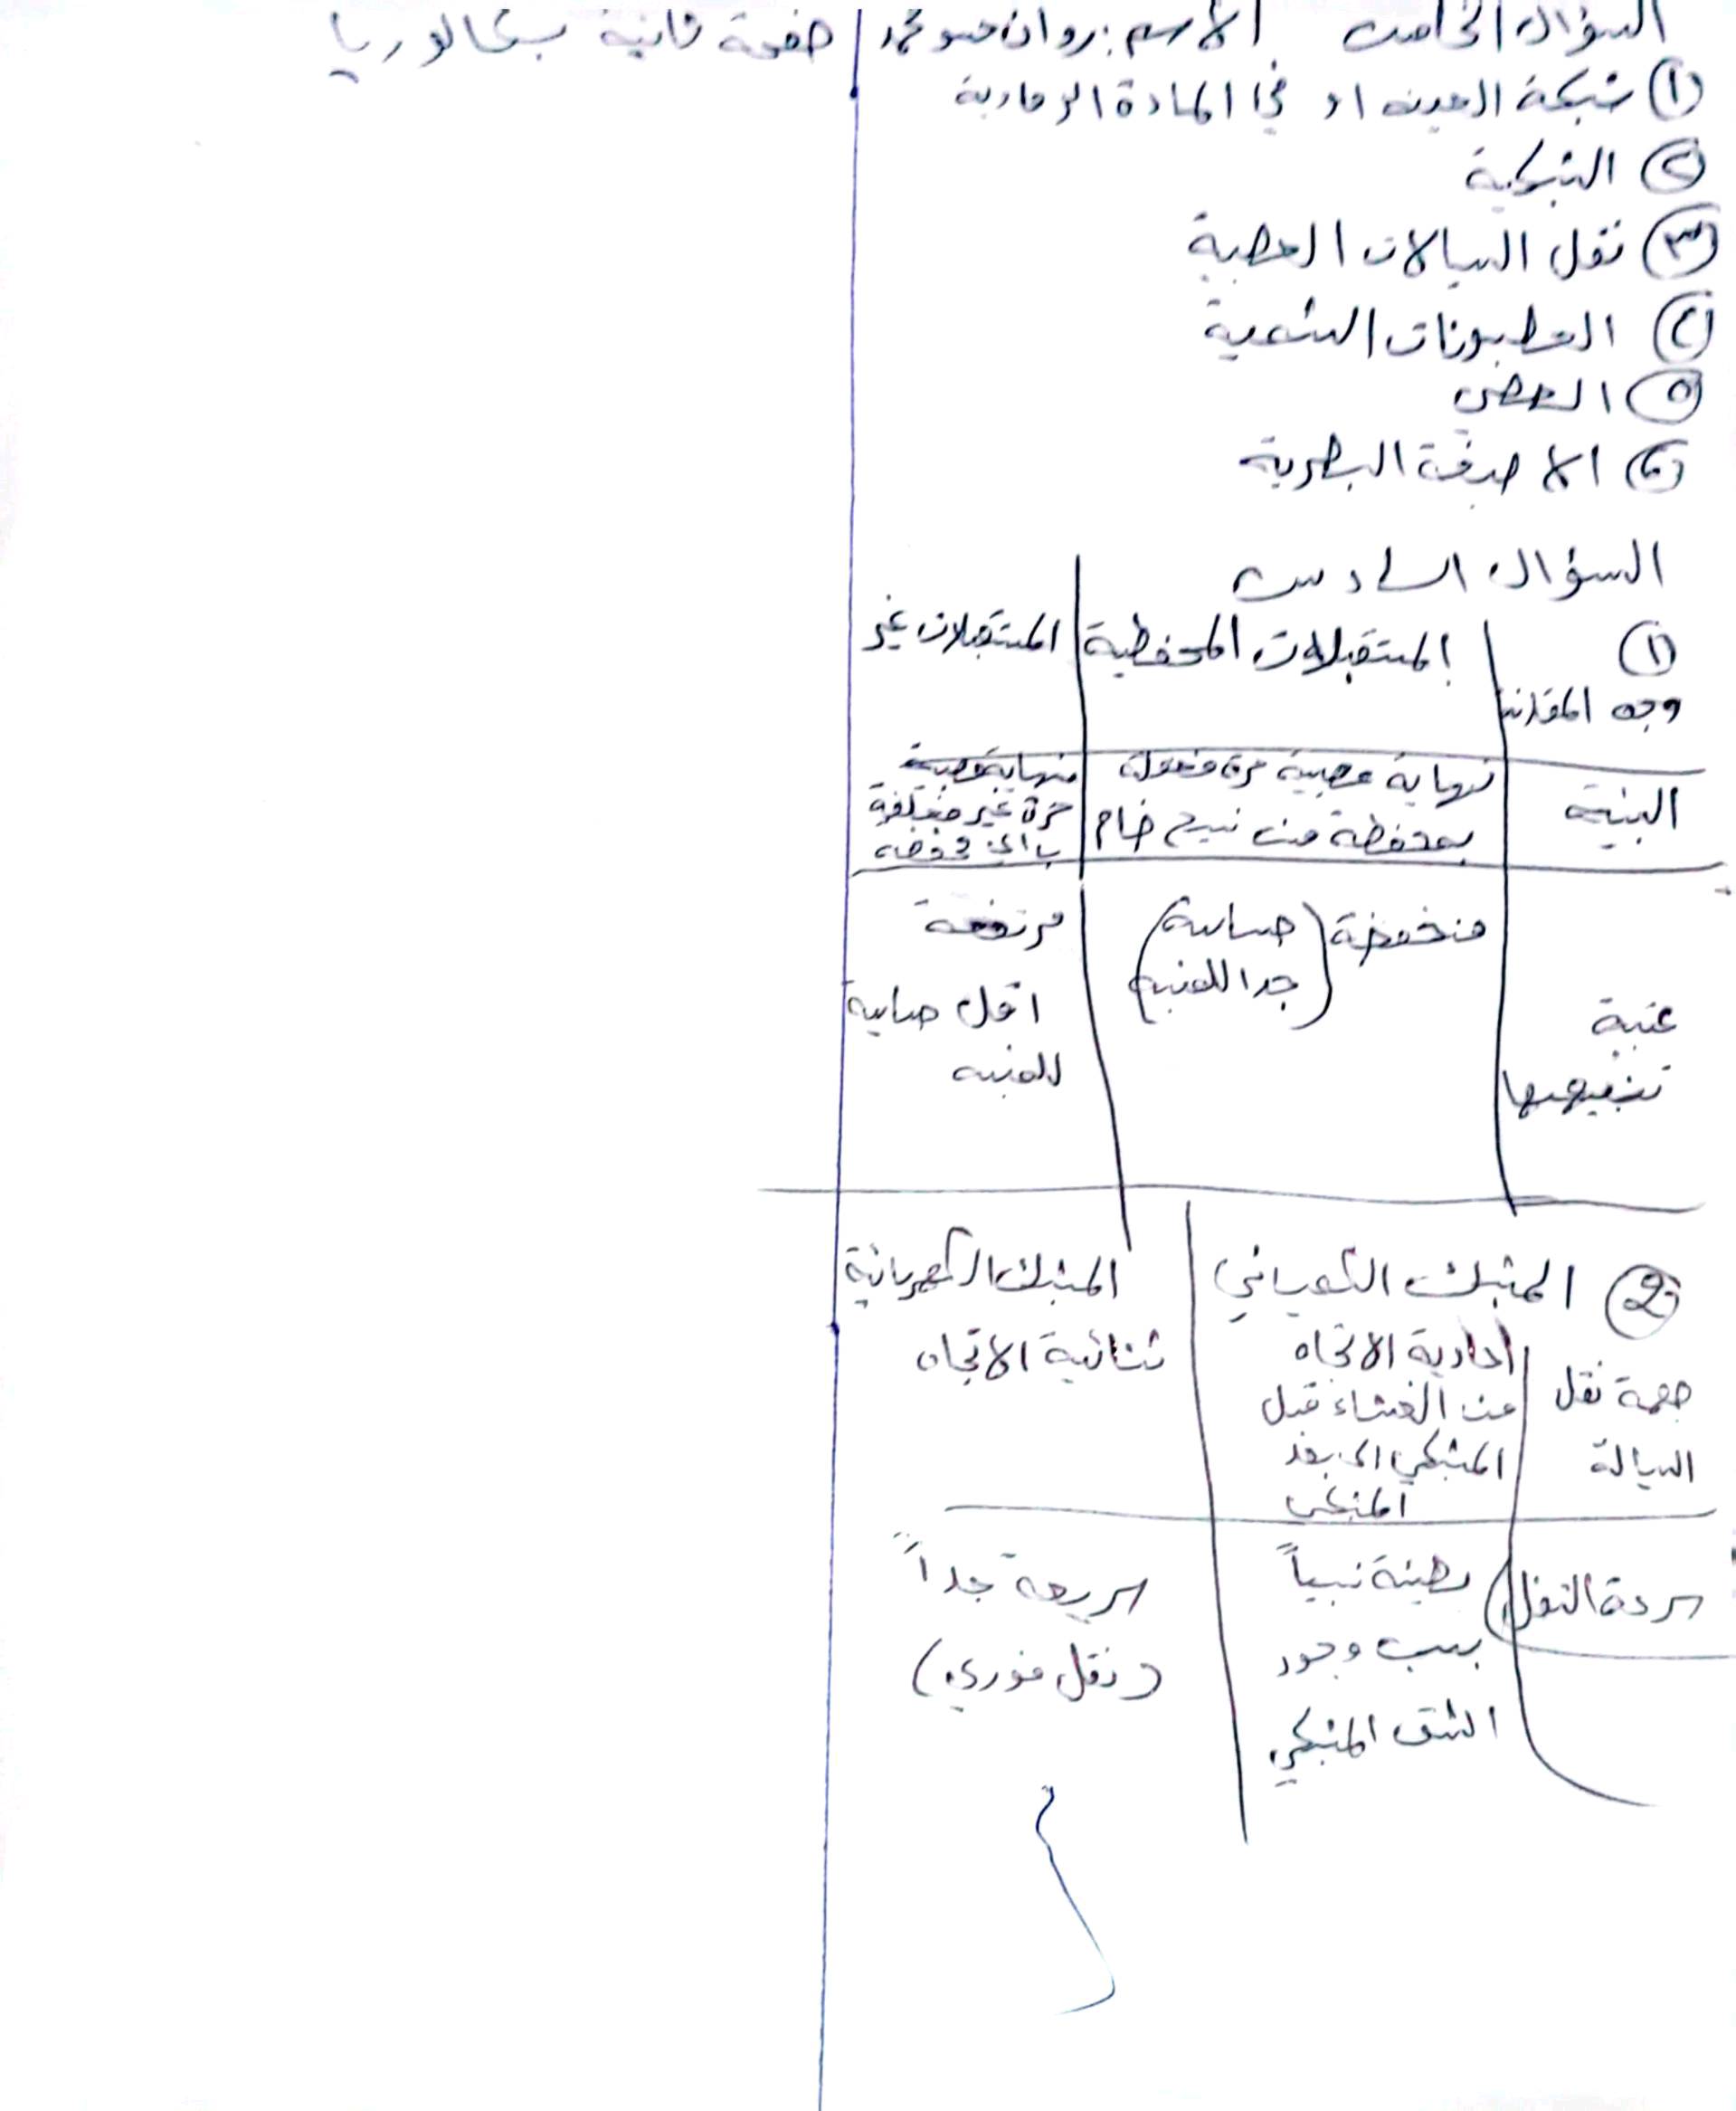 السؤال الخامس الاسم: روان حسو محمد صفحة ثانية بكالوريا
١ شبكية العين او في المادة الرمادية
٢ الشبكية
٣ نقل السيالات العصبية
٤ العصبونات الشمية
٥
٦ الاصبغة البصرية
السؤال السادس
١ المستقبلات المحفظية المستقبلات غير
وجه المقارنة
البنية نهاية عصبية حرة نهاية عصبية
بمحفظة من نسيج ضام حرة غير مغلفة
باي محفظة
منخفضة (حساسة جدا للمنبه) مرتفعة
عتبة تنبيهها اقل حساسية
للمنبه
2 المشبك الكيميائي المشبك الكهربائية
جهة نقل السيالة احادية الاتجاه ثنائية الاتجاه
من الغشاء قبل
المشبكي الى بعد
المشبكي
سرعة النقل بطيئة نسبياً سريعة جداً
بسبب وجود (نقل فوري)
الشق المشبكي